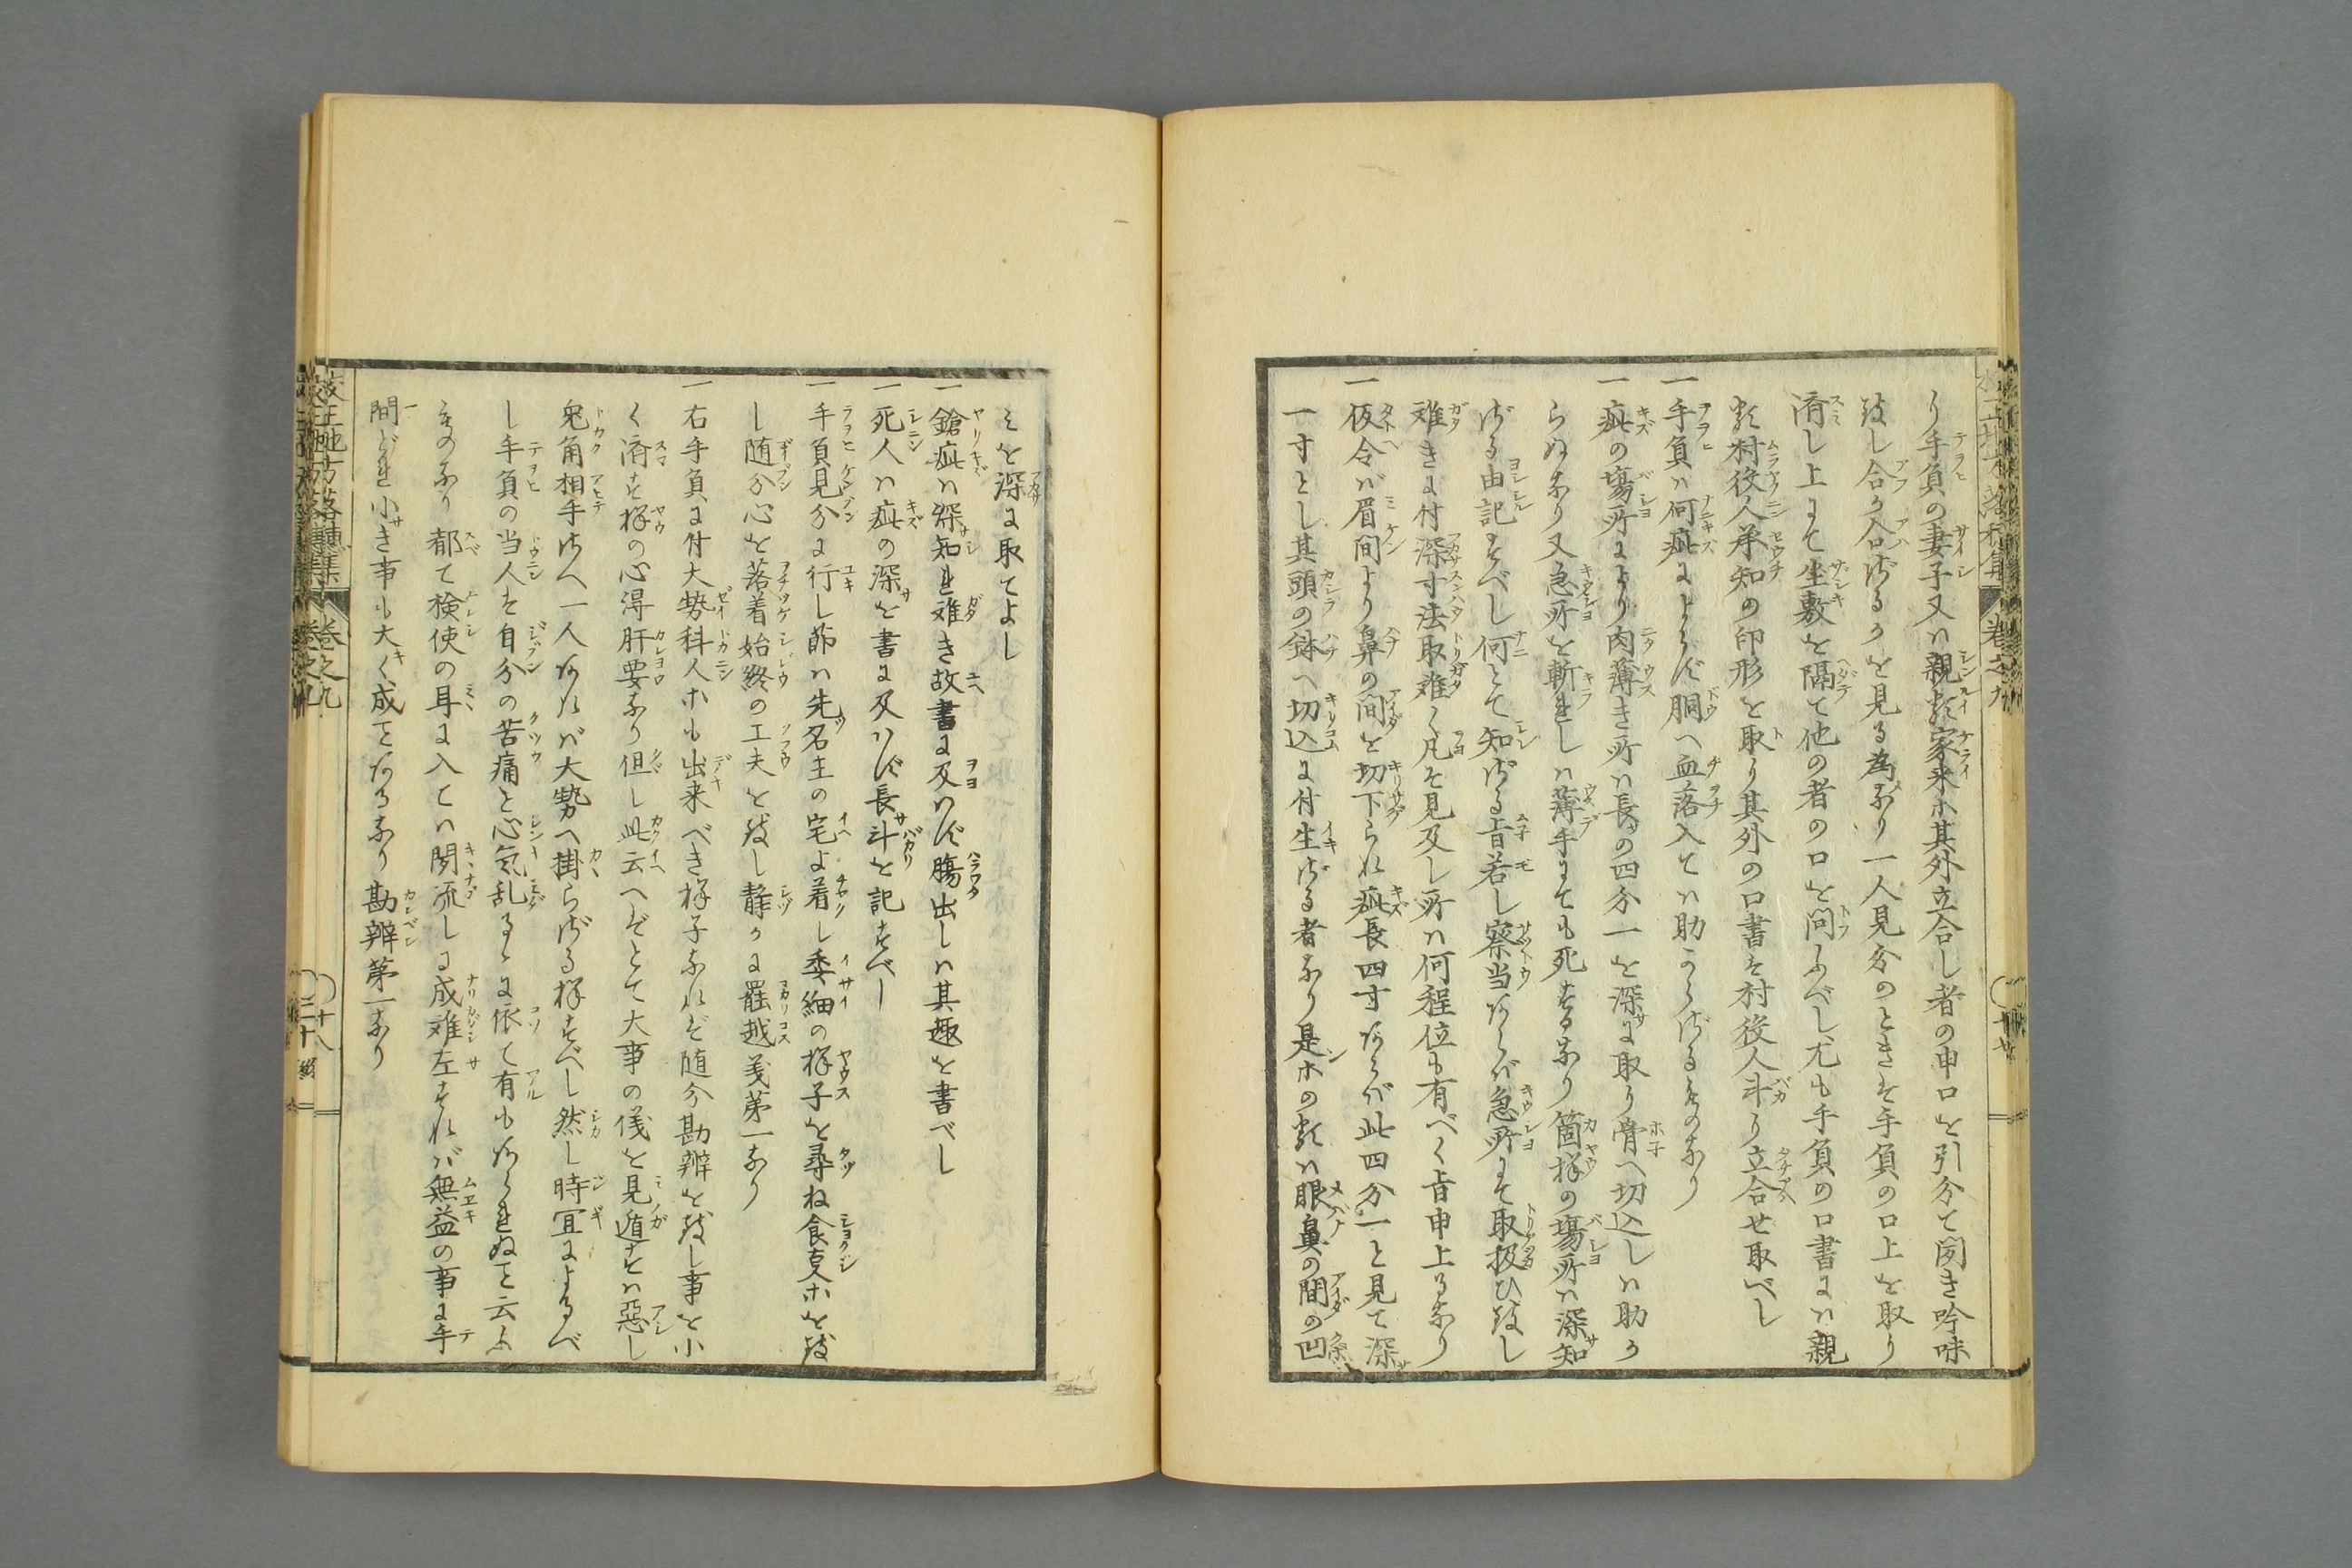 り手負の妻子又ハ親類家来ホ其外立合し者の申口を引分て聞き吟味
致し合か合ざるかを見る為なり一人見分のときハ手負の口上を取り
済し上にて坐敷を隔て他の者の口を問ふべし尤も手負の口書にハ親
類村役人承知の印形を取り其外の口書ハ村役人斗り立合せ取べし
一手負ハ何疵によらず胴へ血落入てハ助からざるものなり
一疵の場所により肉薄き所ハ長の四分一を深に取り骨へ切込しハ助か
らぬなり又急所を斬れしハ薄手にても死するなり箇様の場所ハ深知
ざる由記すべし何とて知ざる旨若し察当あらバ急所にて取扱ひ致し
難きに付深寸法取難く凡そ見及し所ハ何程位も有べく旨申上るなり
一仮令バ眉間より鼻の間を切下られ疵長四寸あらバ此四分一と見て深
一寸とし其頭の鉢へ切込に付生ざる者なり是ホの類ハ眼鼻の間の凹
ミを深に取てよし
一鎗疵ハ深知れ難き故書に及ハず腸出しハ其趣を書べし
一死人ハ疵の深を書に及ハず長斗を記すべし
一手負見分に行し節ハ先名主の宅よ着し委細の様子を尋ね食支ホを致
し随分心を落着始終の工夫を致し静かに罷越義第一なり
一右手負に付大勢科人ホも出来べき様子なれど随分勘辨を致し事を小
く済す様の心得肝要なり但し此云へどとて大事の儀を見遁すハ惡し
兎角相手方へ一人あれバ大勢へ掛らざる様すべし然し時宜によるべ
し手負の当人ハ自分の苦痛と心気乱るゝに依て有もあられぬこと云ふ
ものなり都て検使の耳に入てハ聞流しに成難左すれバ無益の事に手
間どれ小き事も大く成ことあるなり勘辨第一なり
校正地方落穂集
巻之九
○十八